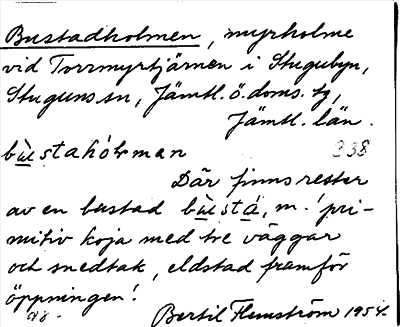 Bustadholmen, myrholme
vid Torrmyrtjärnen i Stugubyn,
Stuguns sn, Jämtl. ö. doms. tg,
Jämtl. län.
338
Där finns rester
av en bustad bùstá, m. 'pri-
mitiv koja med tre väggar
och snedtak, eldstad framför
öppningen'.
Bertil Flemström 1954.